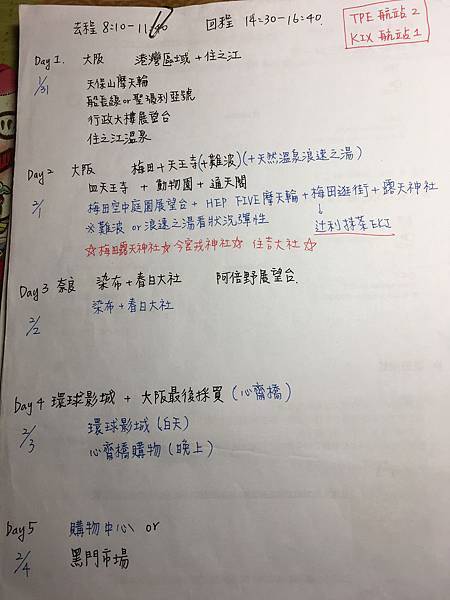 去程 8:10-11:40 回程 14:30-16:40.
TPE 航站2
KIX 航站1
Day 1. 大阪 港灣區域 + 住之江
1/31 天保山摩天輪
船長線 or 聖瑪利亞號
行政大樓展望台
住之江溫泉
Day 2 大阪 梅田 + 天王寺(+難波)(+天然溫泉浪速之湯)
2/1 四天王寺 + 動物園 + 通天閣
梅田空中庭園展望台 + HEP FIVE摩天輪 + 梅田逛街 + 露天神社
※難波 or 浪速之湯看狀況彈性 ↓
辻利抹茶EKI
☆梅田露天神社☆今宮戎神社☆ 住吉大社☆
Day 3 奈良 染布 + 春日大社 阿倍野展望台.
2/2 染布 + 春日大社
Day 4 環球影城 + 大阪最後採買 (心齋橋)
2/3 環球影城 (白天)
心齋橋購物 (晚上)
Day 5 購物中心 or
2/4 黑門市場